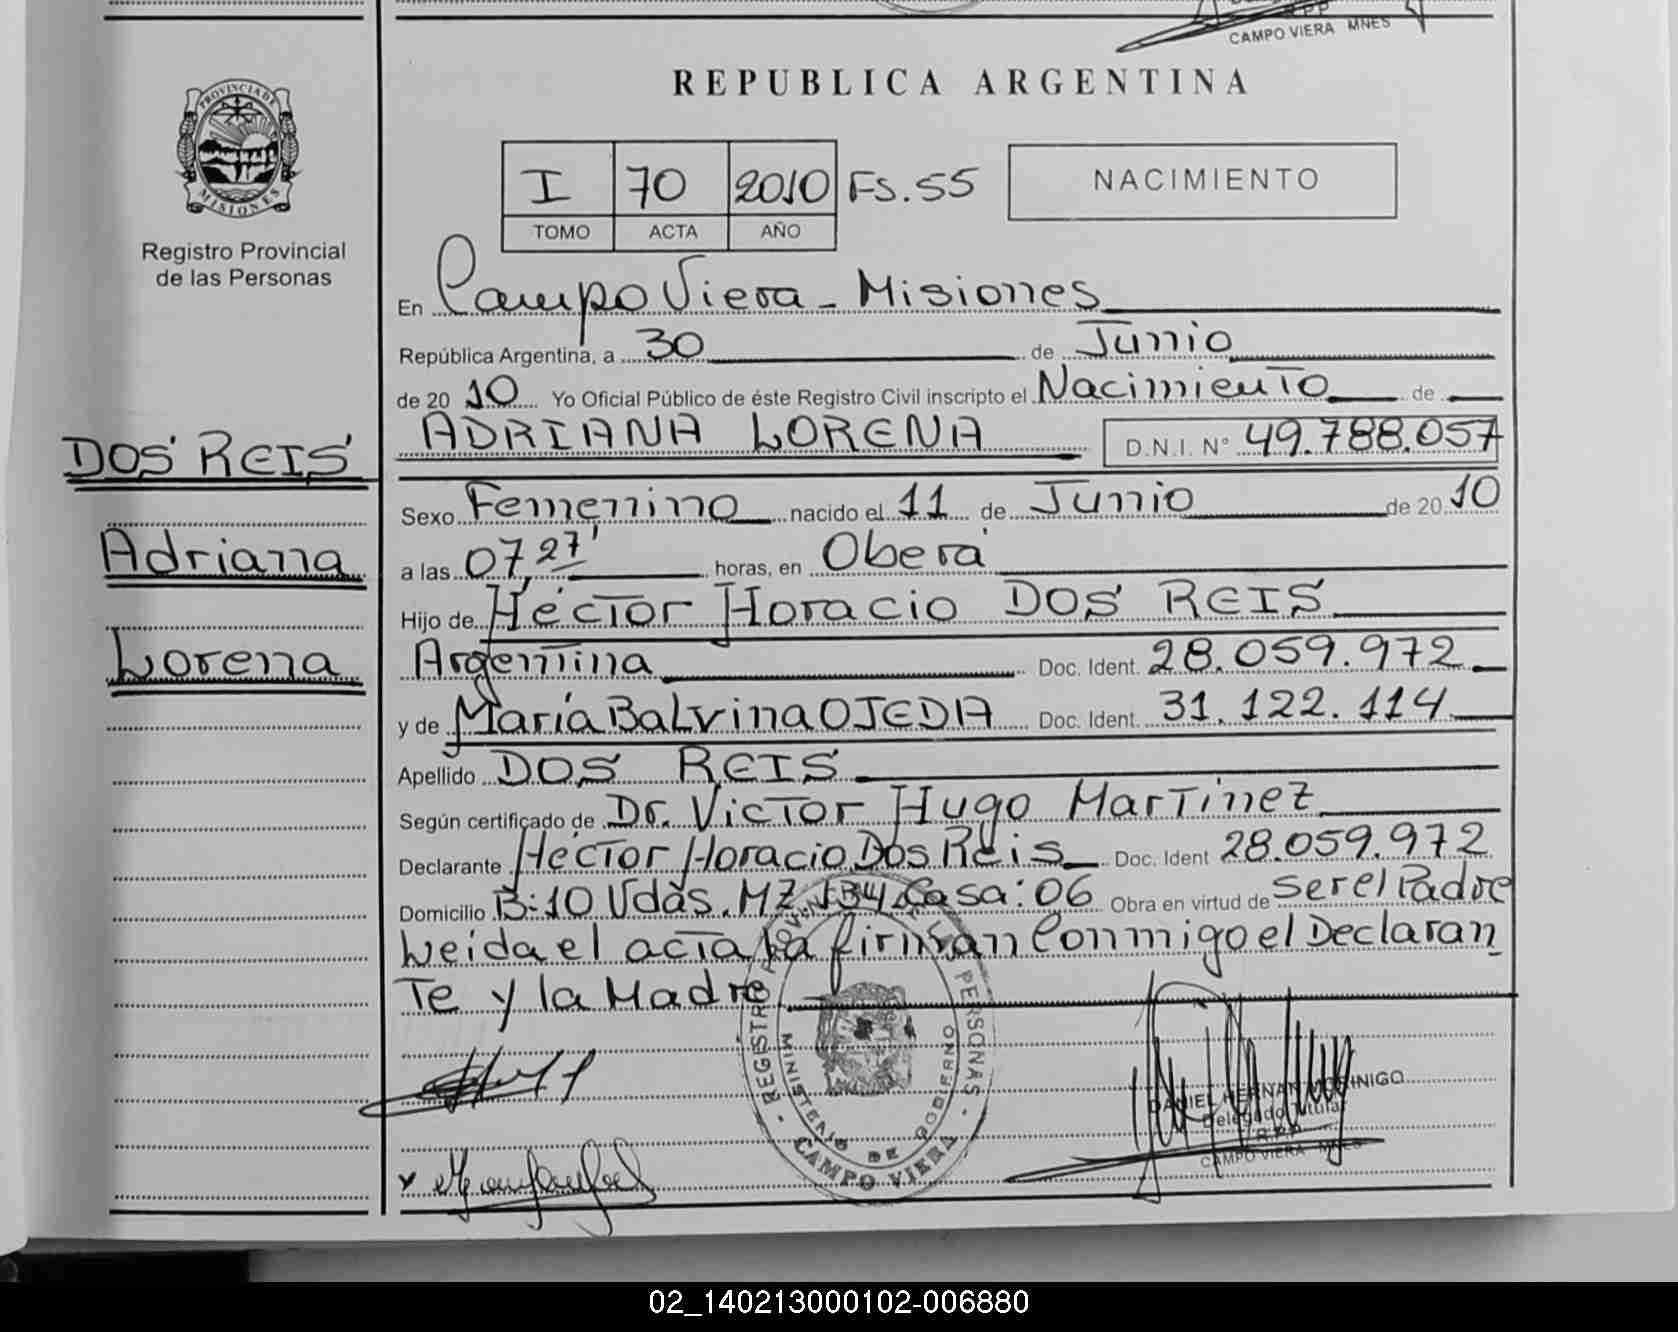 CAMPO VIERA MNES
REPUBLICA ARGENTINA
PROVINCIA DE
MISIONES
Registro Provincial
de las Personas
I 70 2010 FS.55
TOMO ACTA AÑO
NACIMIENTO
En Campo Viera - Misiones
República Argentina, a 30 de Junio
de 2010 Yo Oficial Público de éste Registro Civil inscripto el Nacimiento de
ADRIANA LORENA D.N.I. N° 49.788.057
DOS REIS
Adriana
Lorena
Sexo Femenino nacido el 11 de Junio de 2010
a las 07,27' horas, en Oberá
Hijo de Héctor Horacio DOS REIS
Argentina Doc. Ident. 28.059.972
y de María Balvina OJEDA Doc. Ident. 31.122.114
Apellido DOS REIS
Según certificado de Dr. Victor Hugo Martinez
Declarante Héctor Horacio Dos Reis Doc. Ident 28.059.972
Domicilio B:10 Vdas. MZ.134 Casa: 06 Obra en virtud de ser el Padre
Leída el acta la firman Conmigo el Declaran
Te y la Madre
REGISTRO PROVINCIAL DE LAS PERSONAS
MINISTERIO DE GOBIERNO
CAMPO VIERA
DANIEL HERNAN MORINIGO
Delegado Titular
R.P.P
CAMPO VIERA MNES
02_140213000102-006880